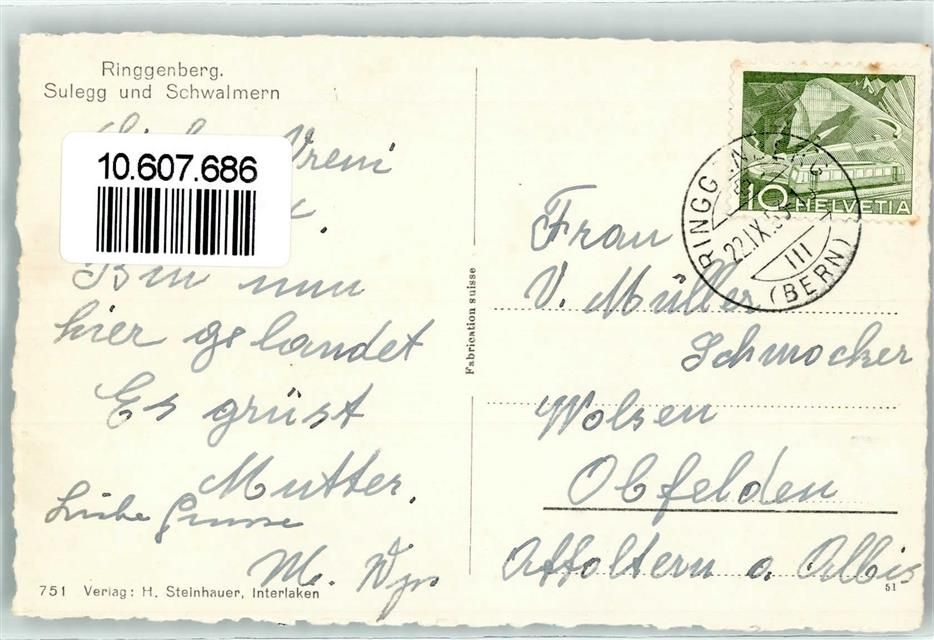 Ringgenberg.
Sulegg und Schwalmern
Vreni
10.607.686
Bin nun
hier gelandet
Es grüst
Mutter.
Liebe Grüsse
M.
751 Verlag: H. Steinhauer, Interlaken
Fabrication suisse
10 HELVETIA
RINGGENBERG
22.IX.5
III
(BERN)
Frau
V. Müller
Schmocker
Wolsen
Obfelden
Affoltern a Albis
51